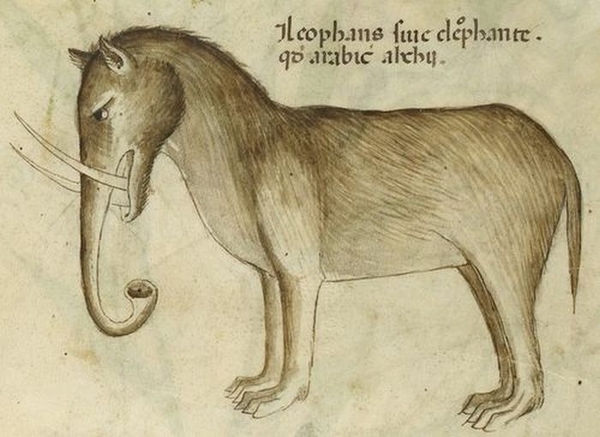 Ileophans siue elephante.
qđ arabic̄ alchij.